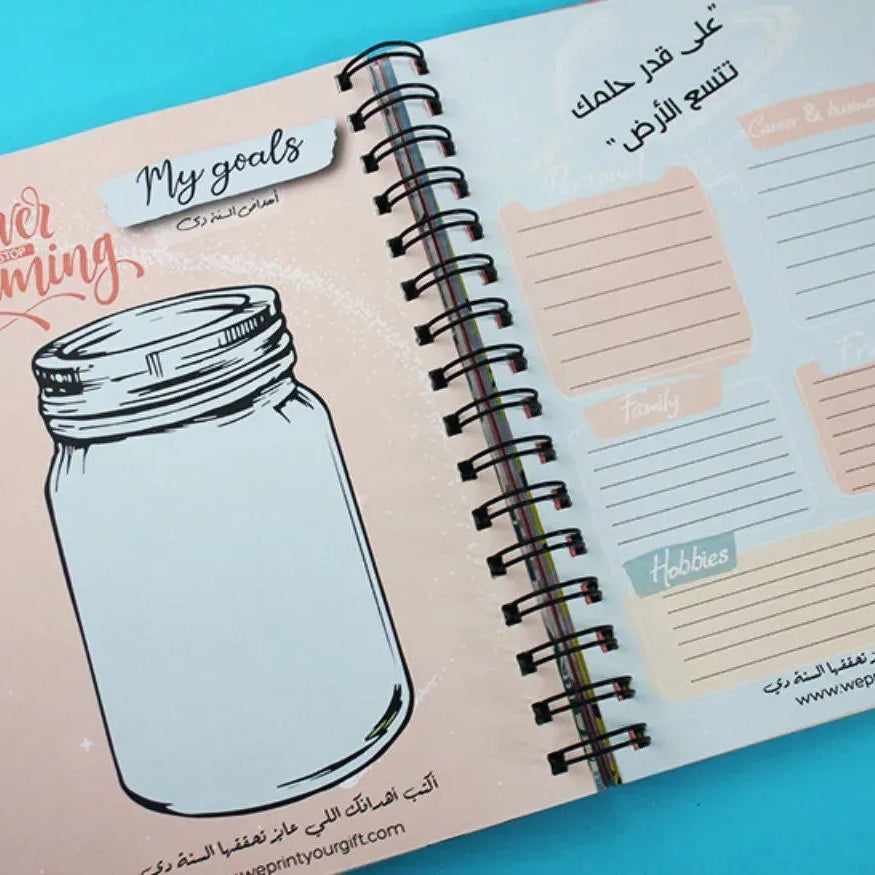 ver
STOP
ming
My goals
أهدافي السنة دي
أكتب أهدافك اللي عايز تحققها السنة دي
weprintyourgift.com
"على قدر حلمك
تتسع الأرض"
Personal
Career & busine
Family
Fr
Hobbies
تحققها السنة دي
www.wep